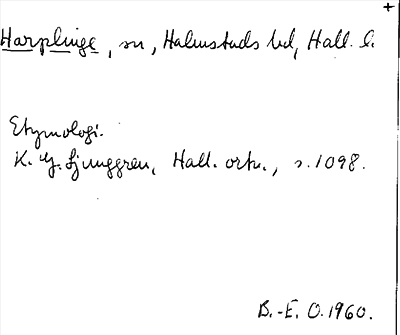 +
Harplinge, sn, Halmstads hd, Hall. l.
Etymologi.
K. G. Ljunggren, Hall. ortn., s. 1098.
B.-E. O. 1960.